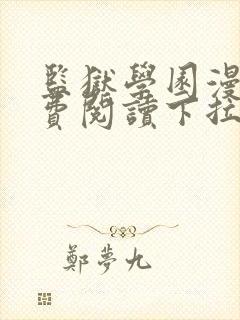 監獄學園漫
費閱讀下拉
鄭夢九